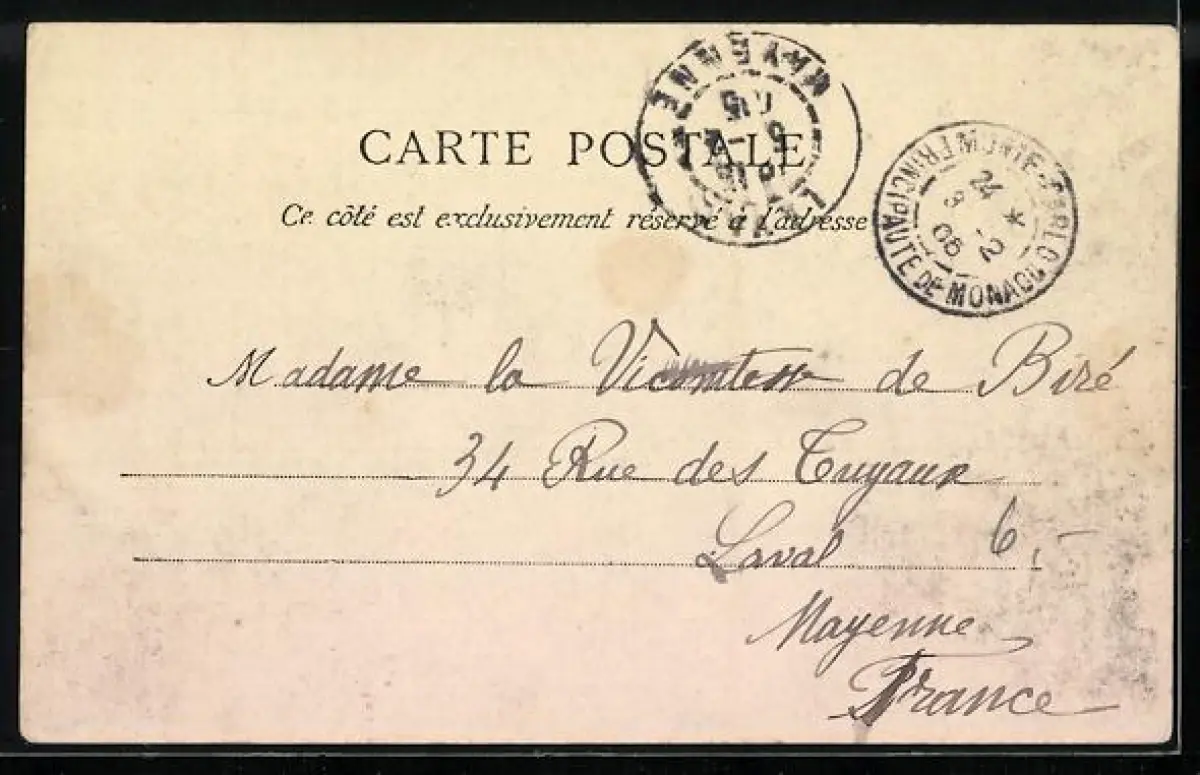 CARTE POSTALE
Ce côté est exclusivement réservé à l'adresse
MAYENNE
MONTE-CARLO
PRINCIPAUTÉ DE MONACO
24
2
Madame la Vicomtesse de Biré
34 Rue des Tuyaux
Laval
6,-
Mayenne
France